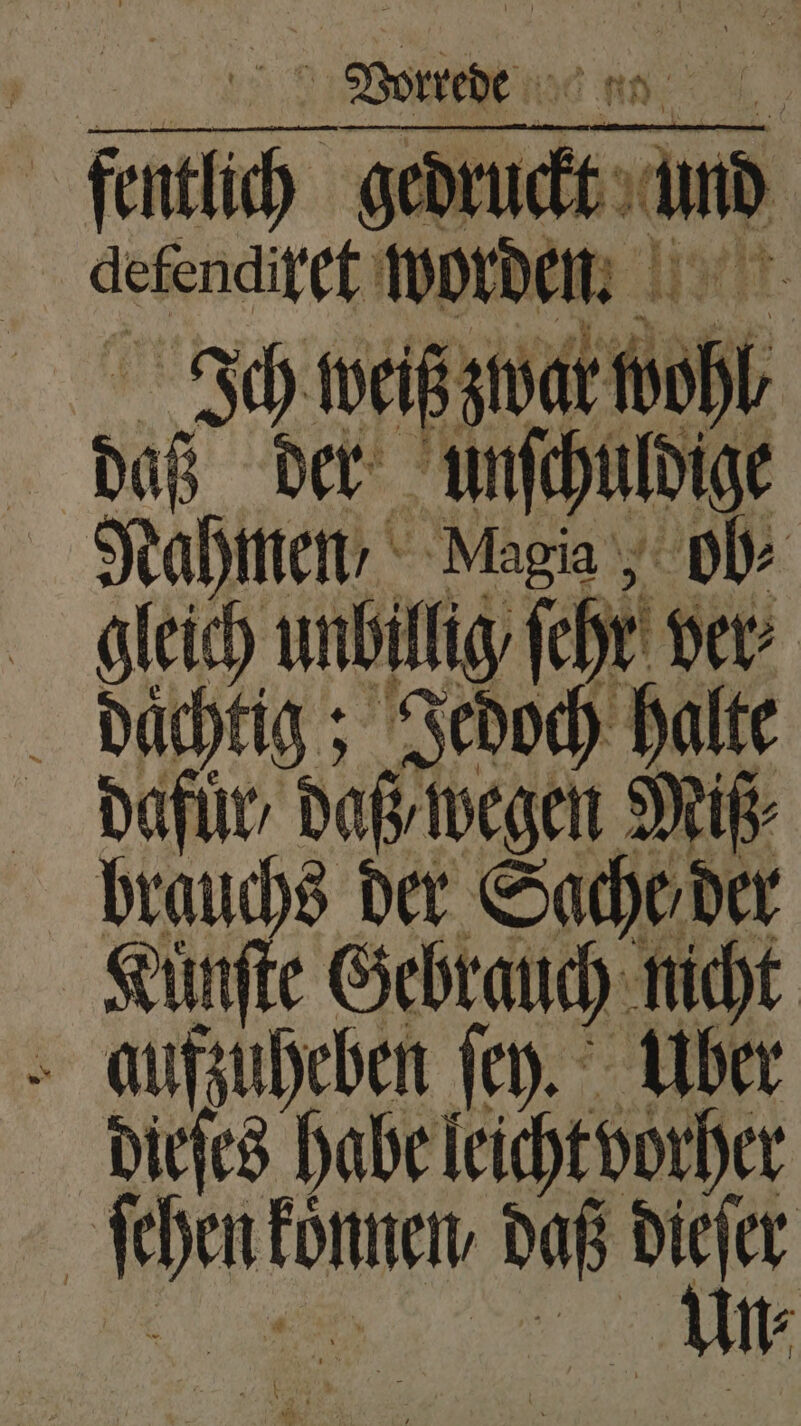 Vorrede
fentlich gedruckt und
defendiret worden.
Ich weiß zwar wohl/
daß der unſchuldige
Nahmen/ Magia, ob⸗
gleich unbillig/ ſehr ver⸗
daͤchtig; Jedoch halte
dafuͤr/ daß/ wegen Miß⸗
brauchs der Sache/ der
Kuͤnſte Gebrauch nicht
aufzuheben ſey. Uber
dieſes habe leicht vorher
ſehen koͤnnen/ daß dieſer
Un⸗